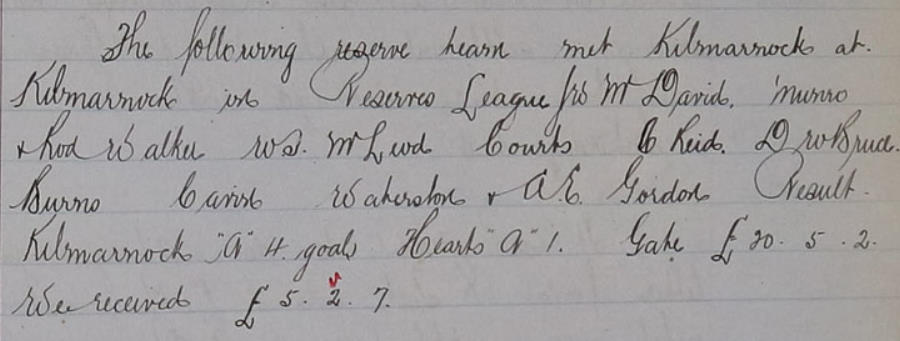 The following reserve team met Kilmarnock at.
Kilmarnock in Reserves League McDavid. Munro
& Rod Walker W.S. Courts C Reid. D W Bruce.
Burns Cairns Waterston & A.E. Gordon Result.
Kilmarnock "A" 4. goals Hearts "A" 1. Gate £20. 5. 2.
We received £5. 2. 7.